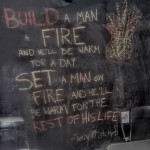 BUILD A MAN
A FIRE
AND HE'LL BE WARM
FOR A DAY.
SET A MAN ON
FIRE AND HE'LL
BE WARM FOR THE
REST OF HIS LIFE